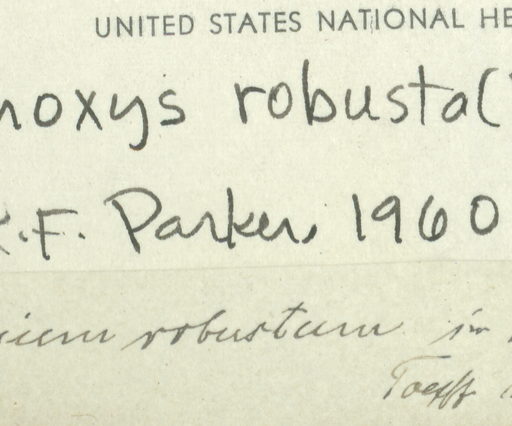 UNITED STATES NATIONAL HE
noxys robusta (
K.F. Parker, 1960
ium robustum in